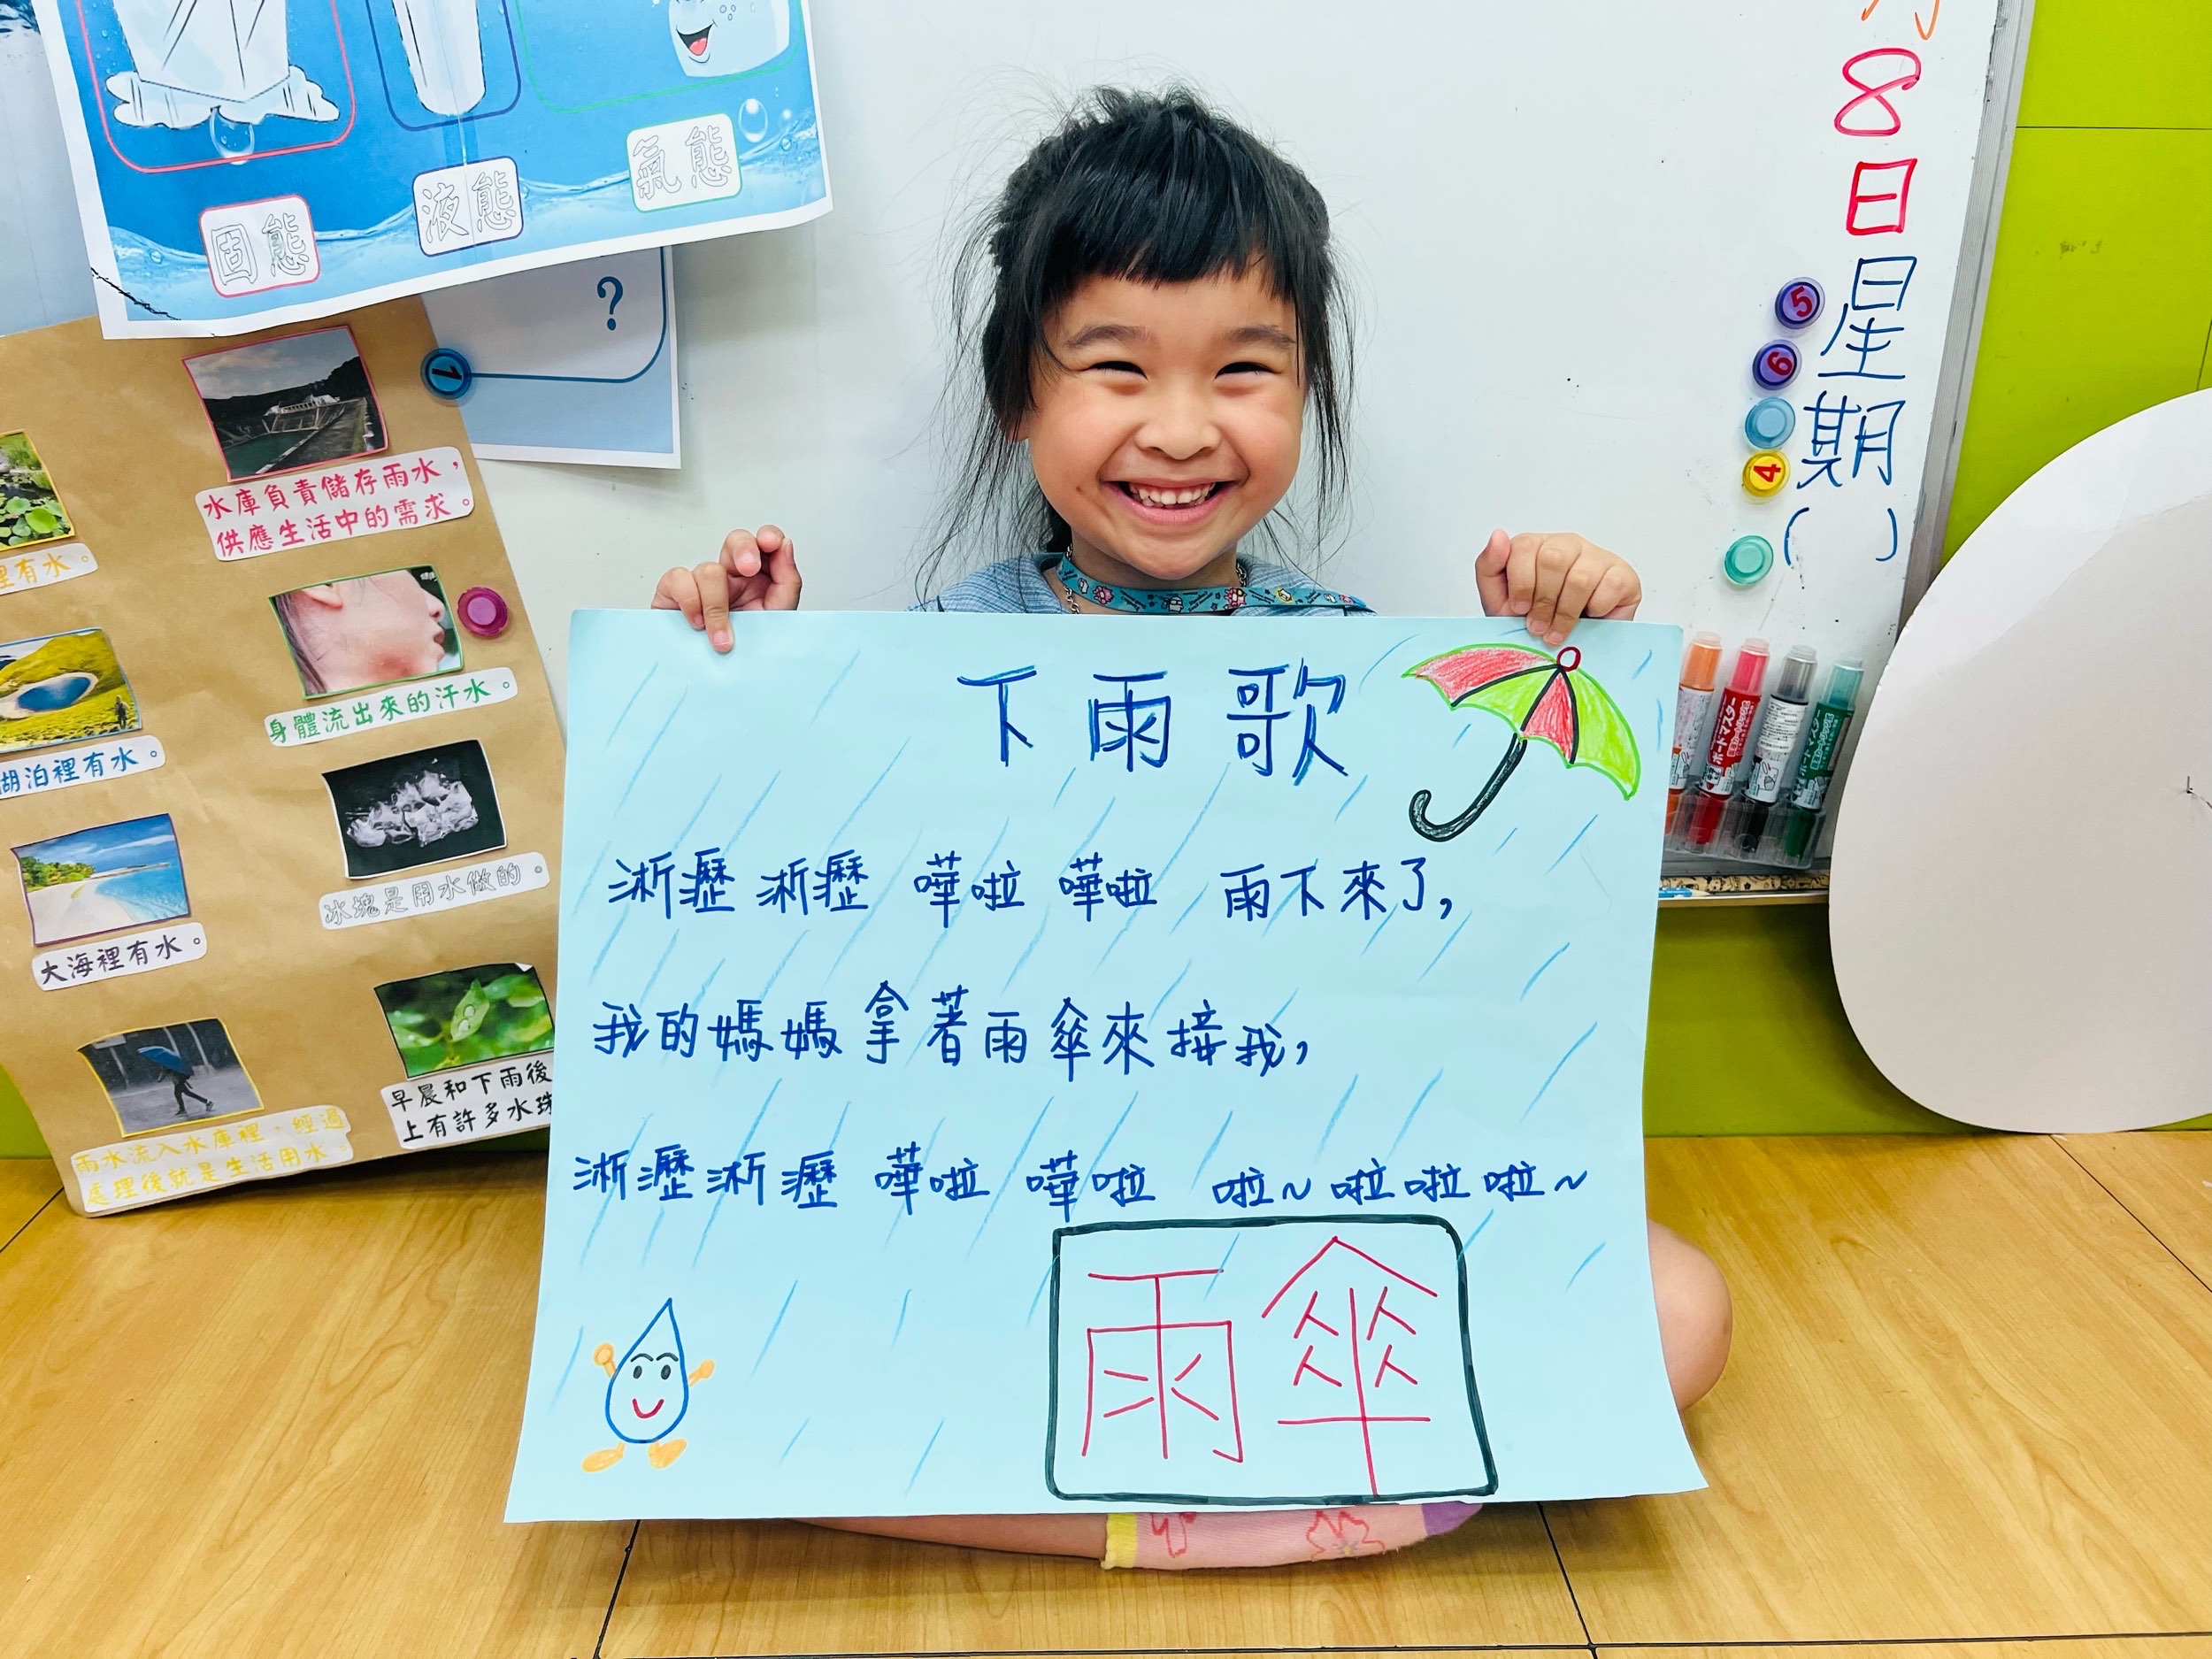 固態
液態
氣態
?
1
水庫負責儲存雨水，
供應生活中的需求。
裡有水。
身體流出來的汗水。
湖泊裡有水。
冰塊是用水做的。
大海裡有水。
早晨和下雨後
上有許多水珠
雨水流入水庫裡，經過
處理後就是生活用水。
8
日
星
期
( )
5
6
4
ボードマスター
下雨歌
淅瀝 淅瀝 嘩啦 嘩啦 雨下來了,
我的媽媽拿著雨傘來接我,
淅瀝淅瀝 嘩啦 嘩啦 啦~啦啦啦~
雨傘